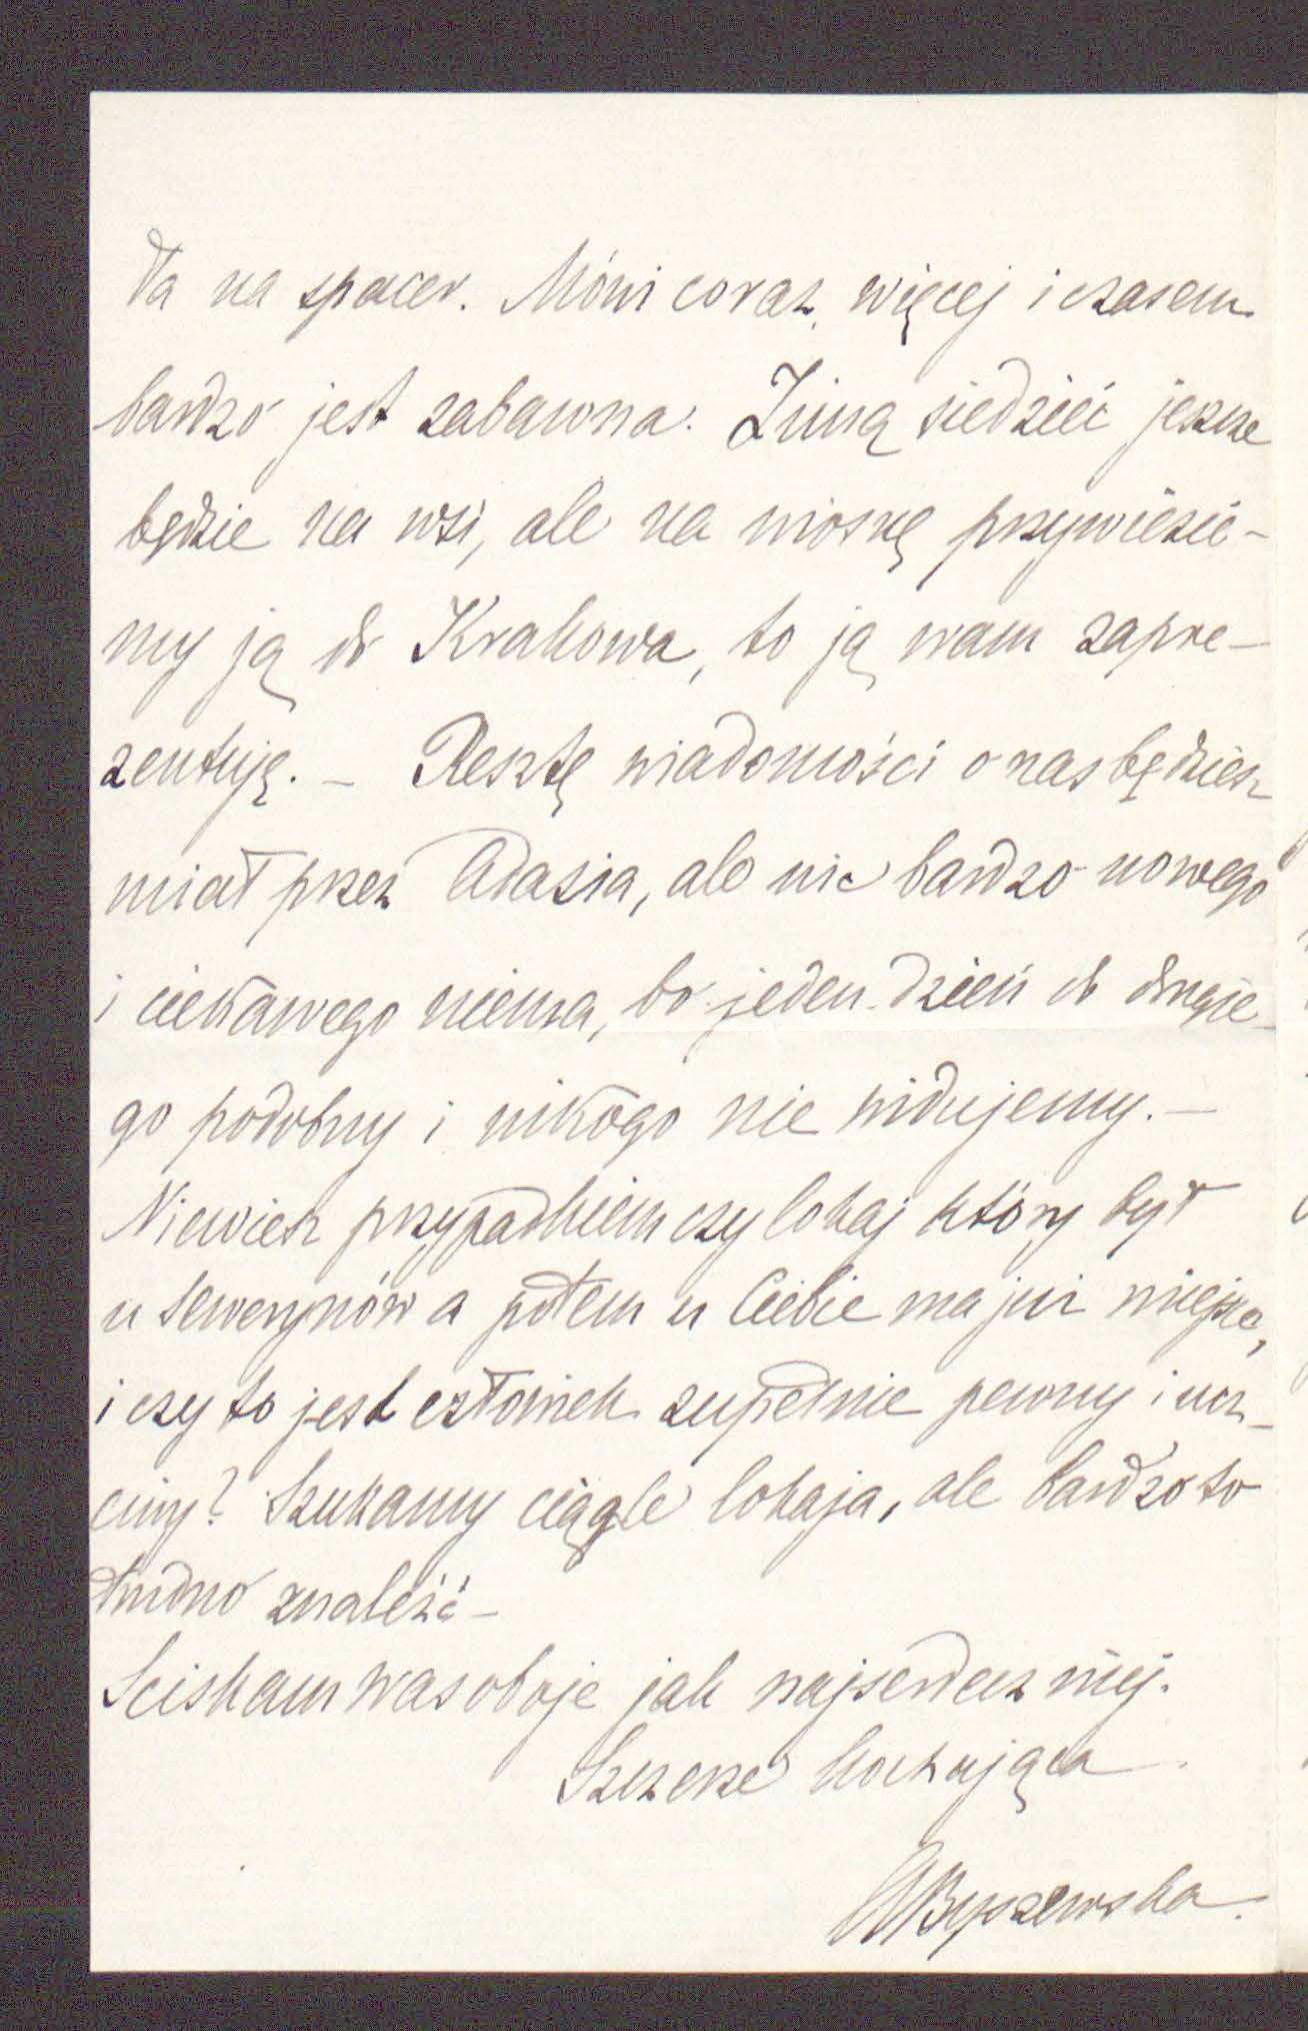 ła na spacer. Mówi coraz więcej i czasem
bardzo jest zabawna. Zimą siedzieć jeszcze
będzie na wsi, ale na wiosnę przywiezie-
my ją do Krakowa, to ją wam zapre-
zentuję. - Resztę wiadomości o nas będziesz
miał przez Adasia, ale nic bardzo nowego
i ciekawego niema, bo jeden dzień do drugie-
go podobny i nikogo nie widujemy. -
Niewiesz przypadkiem czy lokaj który był
u Sewerynów a potem u Ciebie ma już miejsce,
i czy to jest człowiek zupełnie pewny i ucz-
ciwy? Szukamy ciągle lokaja, ale bardzo to
trudno znaleźć -
Sciskam Was oboje jak najserdeczniej.
Szczerze kochająca
Byszewska.